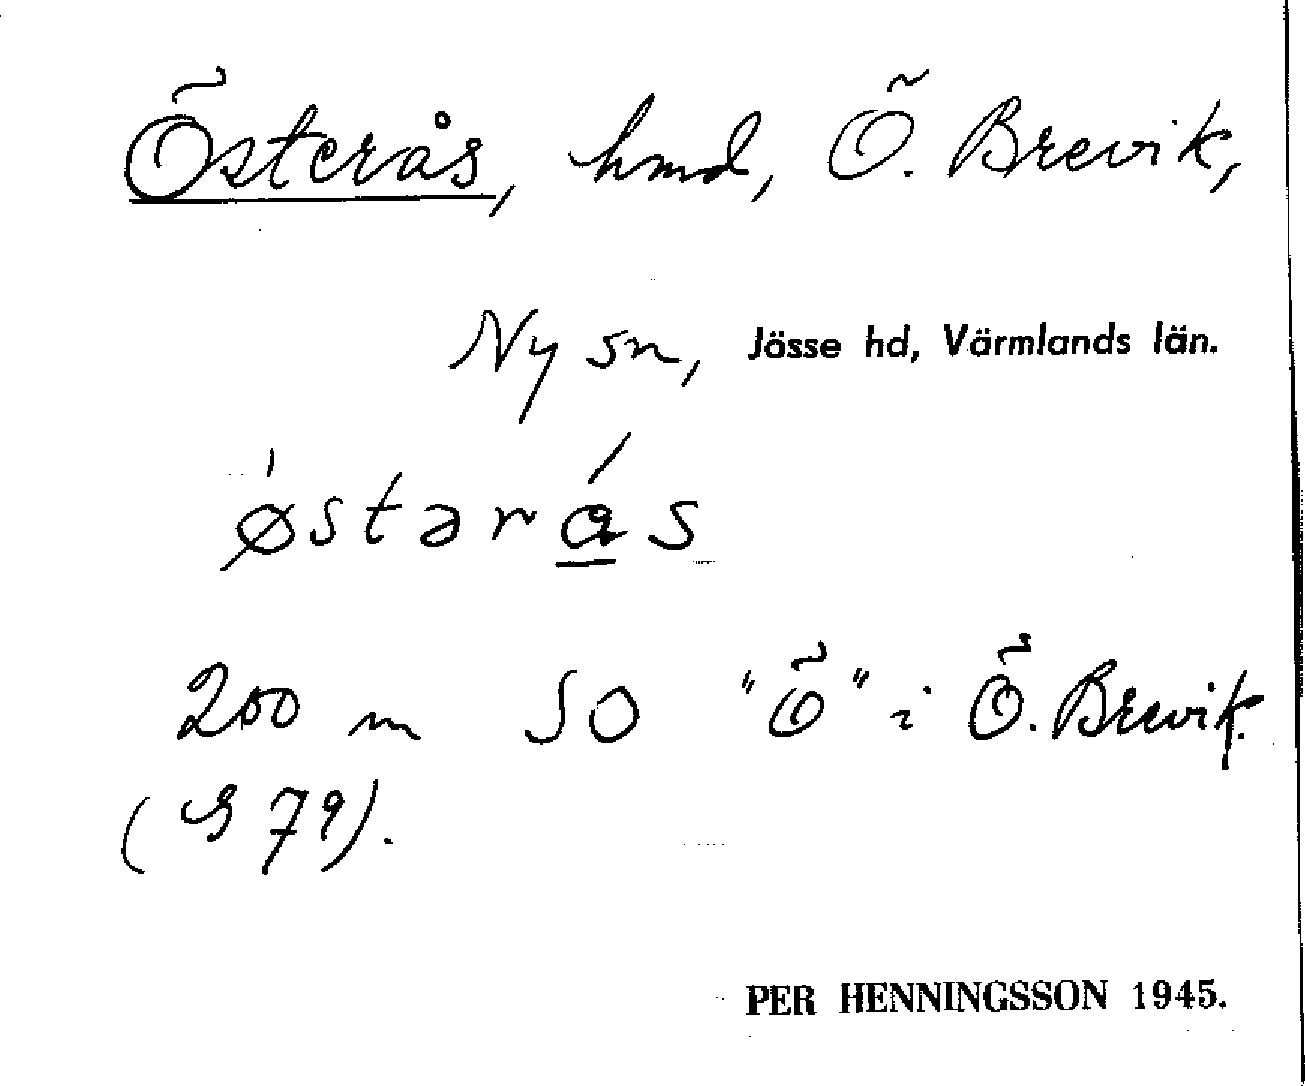 Österås, hmd, Ö. Brevik,
Ny sn, Jösse hd, Värmlands län.
ˈøstərás
200 m SO "Ö" i Ö. Brevik.
(S 79).
PER HENNINGSSON 1945.